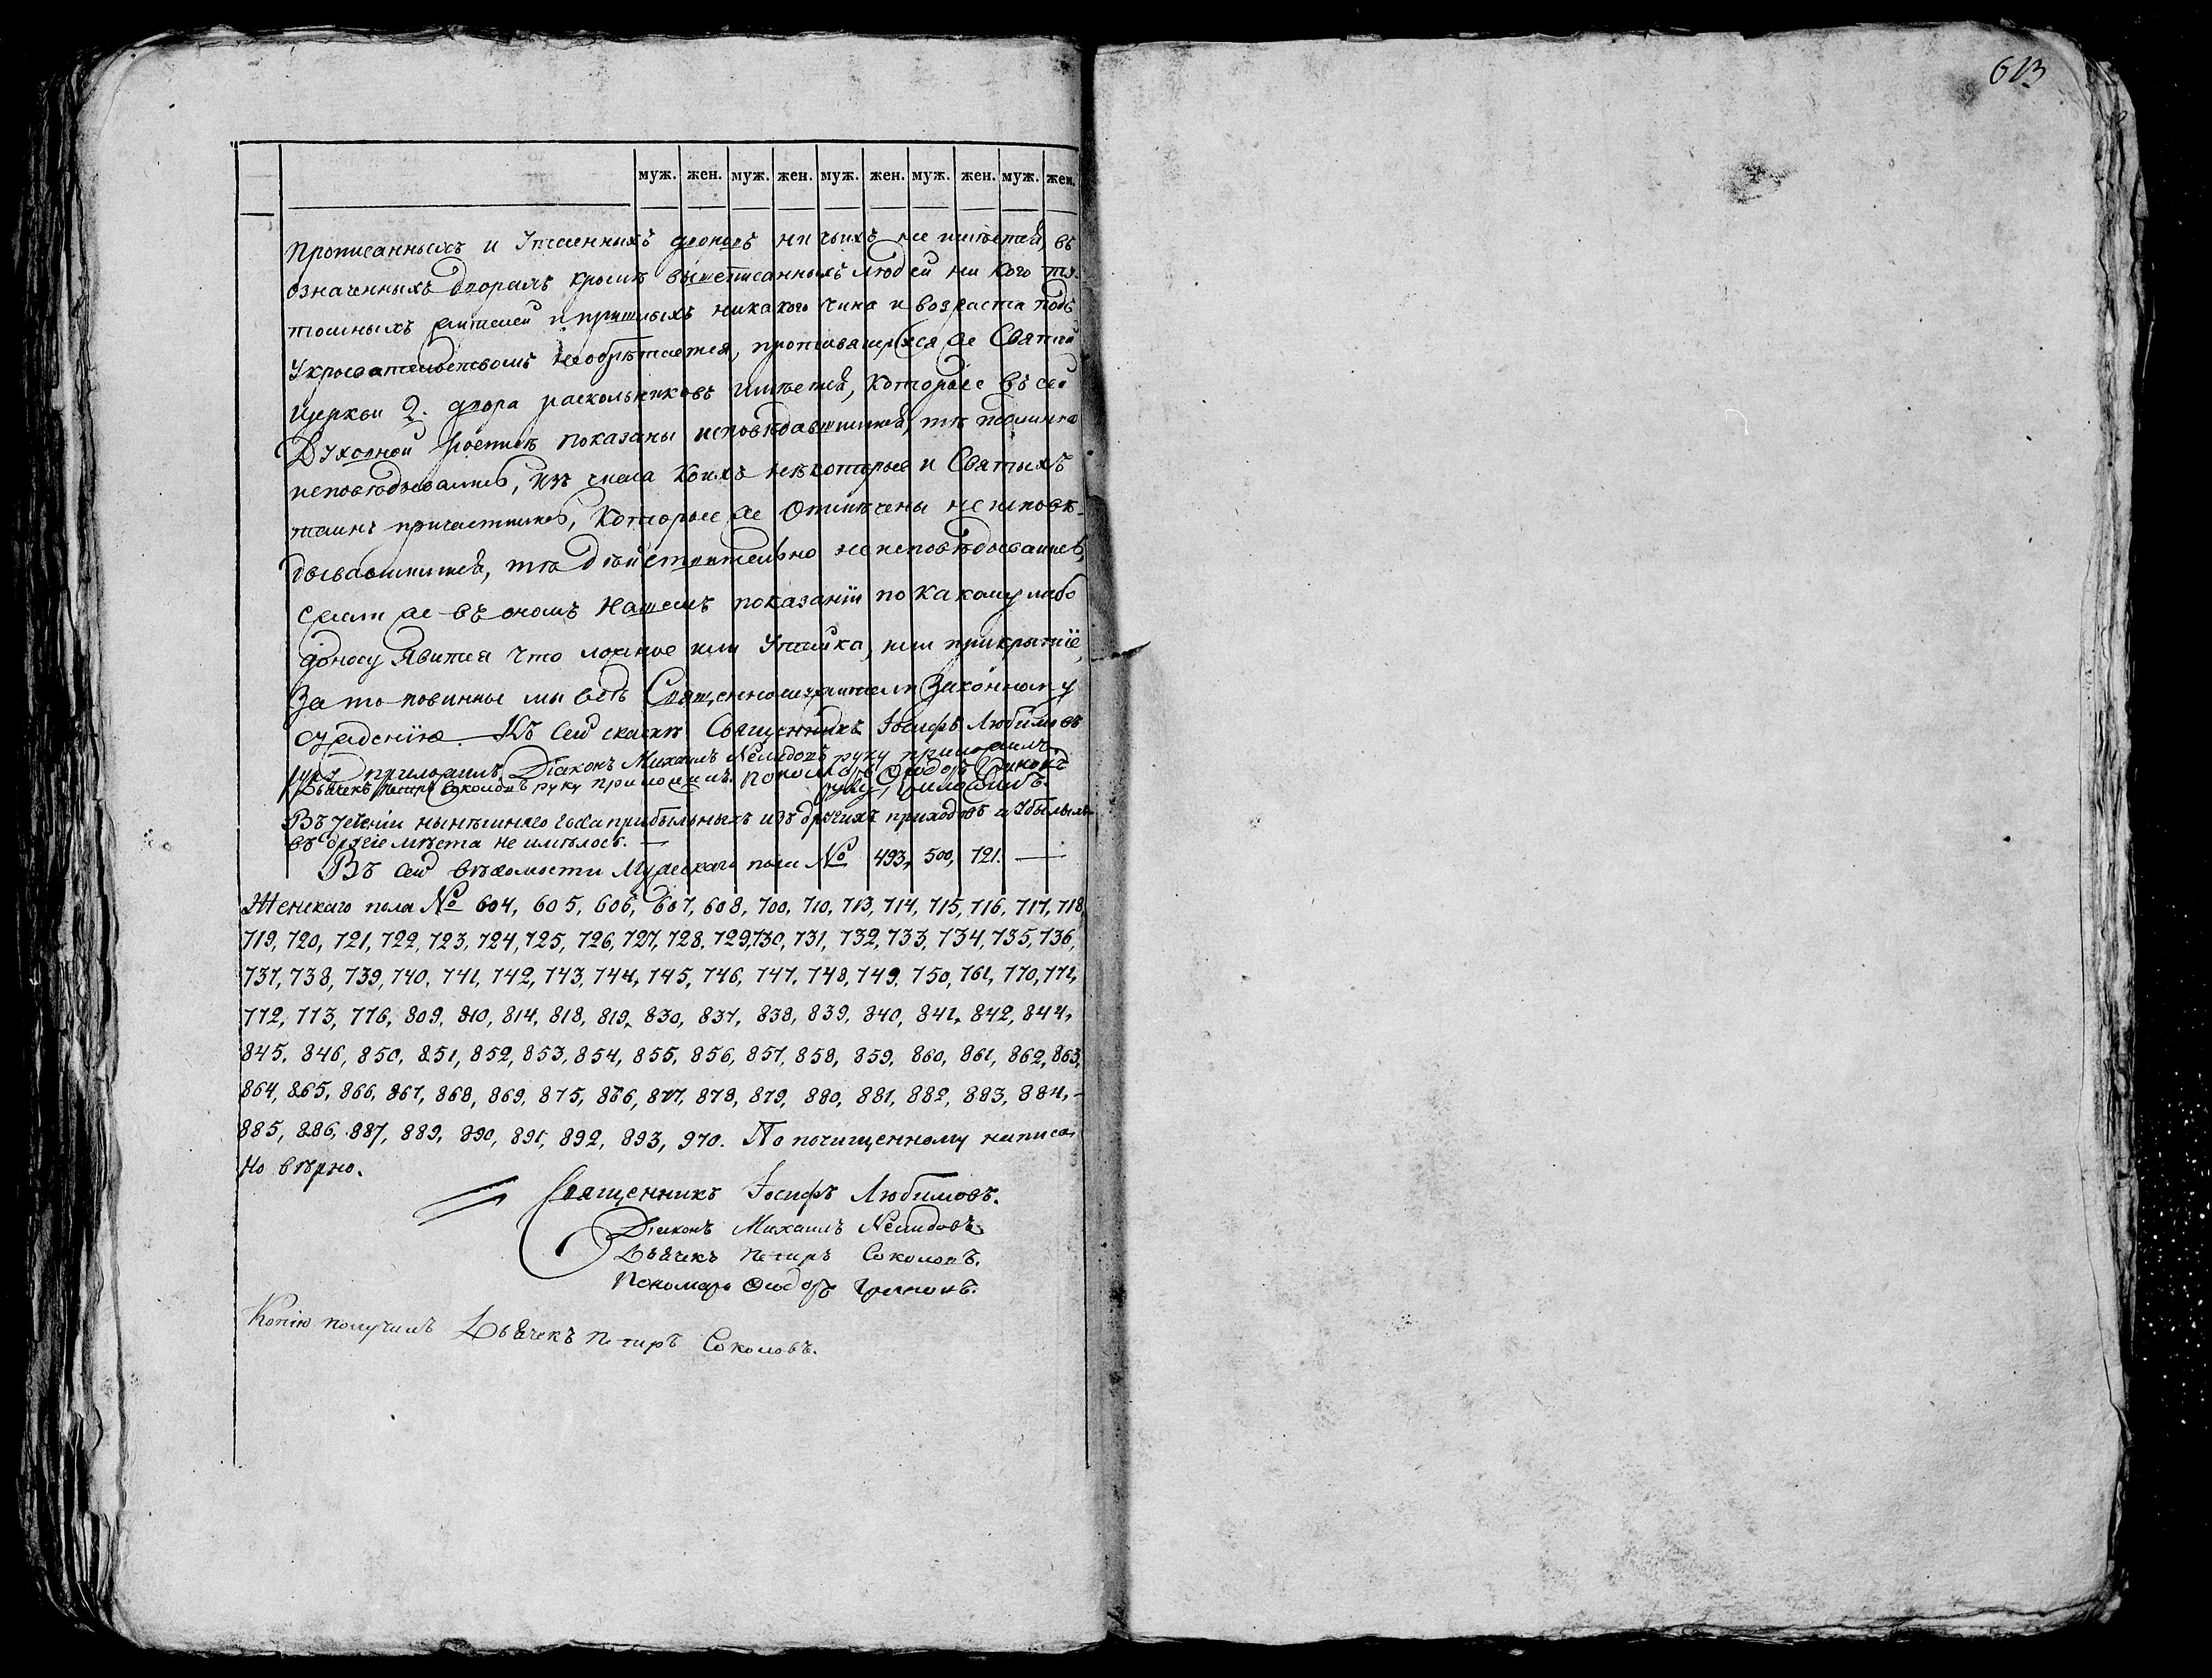 613
муж. жен. муж. жен. муж. жен. муж. жен. муж. жен.
прописанныхъ и утаенныхъ дворовъ ни чьихъ не имѣется, въ
означенныхъ дворахъ кромѣ вышеписанныхъ людей ни кого ту-
тошныхъ жителей и пришлыхъ никакого чина и возраста подъ
укрывательствомъ необрѣтается, противящихся же Святой
Церкви 2. двора раскольниковъ имѣется, которые въ сей
Духовной росписѣ показаны исповѣдавшимися, тѣ подлинно
исповѣдывались, изъ числа коихъ нѣкоторые и Святыхъ
таинъ причастились, которые же отмѣчены неисповѣ-
дывавшимися, тѣ дѣйствительно неисповѣдывались,
Если же въ ономъ нашемъ показаніи по какому либо
доносу явится что ложное или утайка, или прикрытіе,
за то повинны мы всѣ Священнослужители законному
суждению. Къ сей сказкѣ Священникъ Іосифъ Любимовъ
руку приложилъ Діаконъ Михаилъ Нелидовъ руку приложилъ
Дьячекъ Петръ Соколовъ руку приложилъ. Пономарь Ѳеодоръ
руку приложилъ.
Въ теченіи нынѣшняго года прибылыхъ изъ другихъ приходовъ и убылыхъ
въ другіе мѣста не имѣлось. —
Въ сей вѣдомости Мужескаго пола № 493, 500, 721. —
Женскаго пола № 604, 605, 606, 607, 608, 700, 710, 713, 714, 715, 716, 717, 718,
719, 720, 721, 722, 723, 724, 725, 726, 727, 728, 729, 730, 731, 732, 733, 734, 735, 736,
737, 738, 739, 740, 741, 742, 743, 744, 745, 746, 747, 748, 749, 750, 761, 770, 771,
772, 773, 776, 809, 810, 814, 818, 819, 830, 837, 838, 839, 840, 841, 842, 844,
845, 846, 850, 851, 852, 853, 854, 855, 856, 857, 858, 859, 860, 861, 862, 863,
864, 865, 866, 867, 868, 869, 875, 876, 877, 878, 879, 880, 881, 882, 883, 884, -
885, 886, 887, 889, 890, 891, 892, 893, 970. По почищенному написа-
но вѣрно.
Священникъ Іосифъ Любимовъ.
Діаконъ Михаилъ Нелидовъ
Дьячекъ Петръ Соколовъ.
Пономарь Ѳеодоръ
Копію получилъ Дьячекъ Петръ Соколовъ.